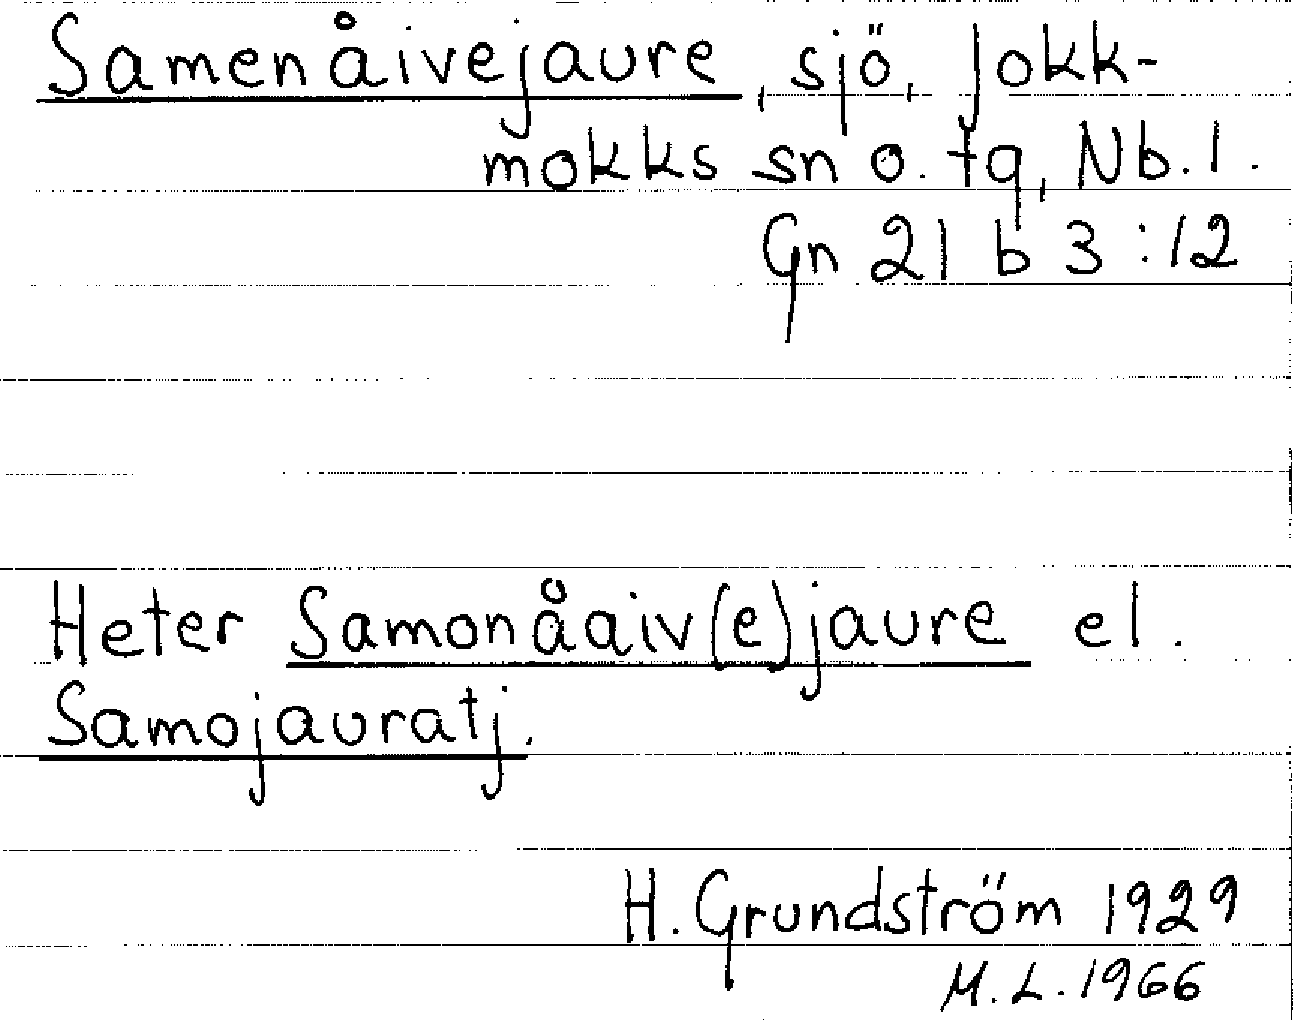 Samenåivejaure, sjö, Jokk-
mokks sn o. tg, Nb. l.
Gn 21 b 3:12
Heter Samonåaiv(e)jaure el.
Samojauratj.
H. Grundström 1929
M. L. 1966